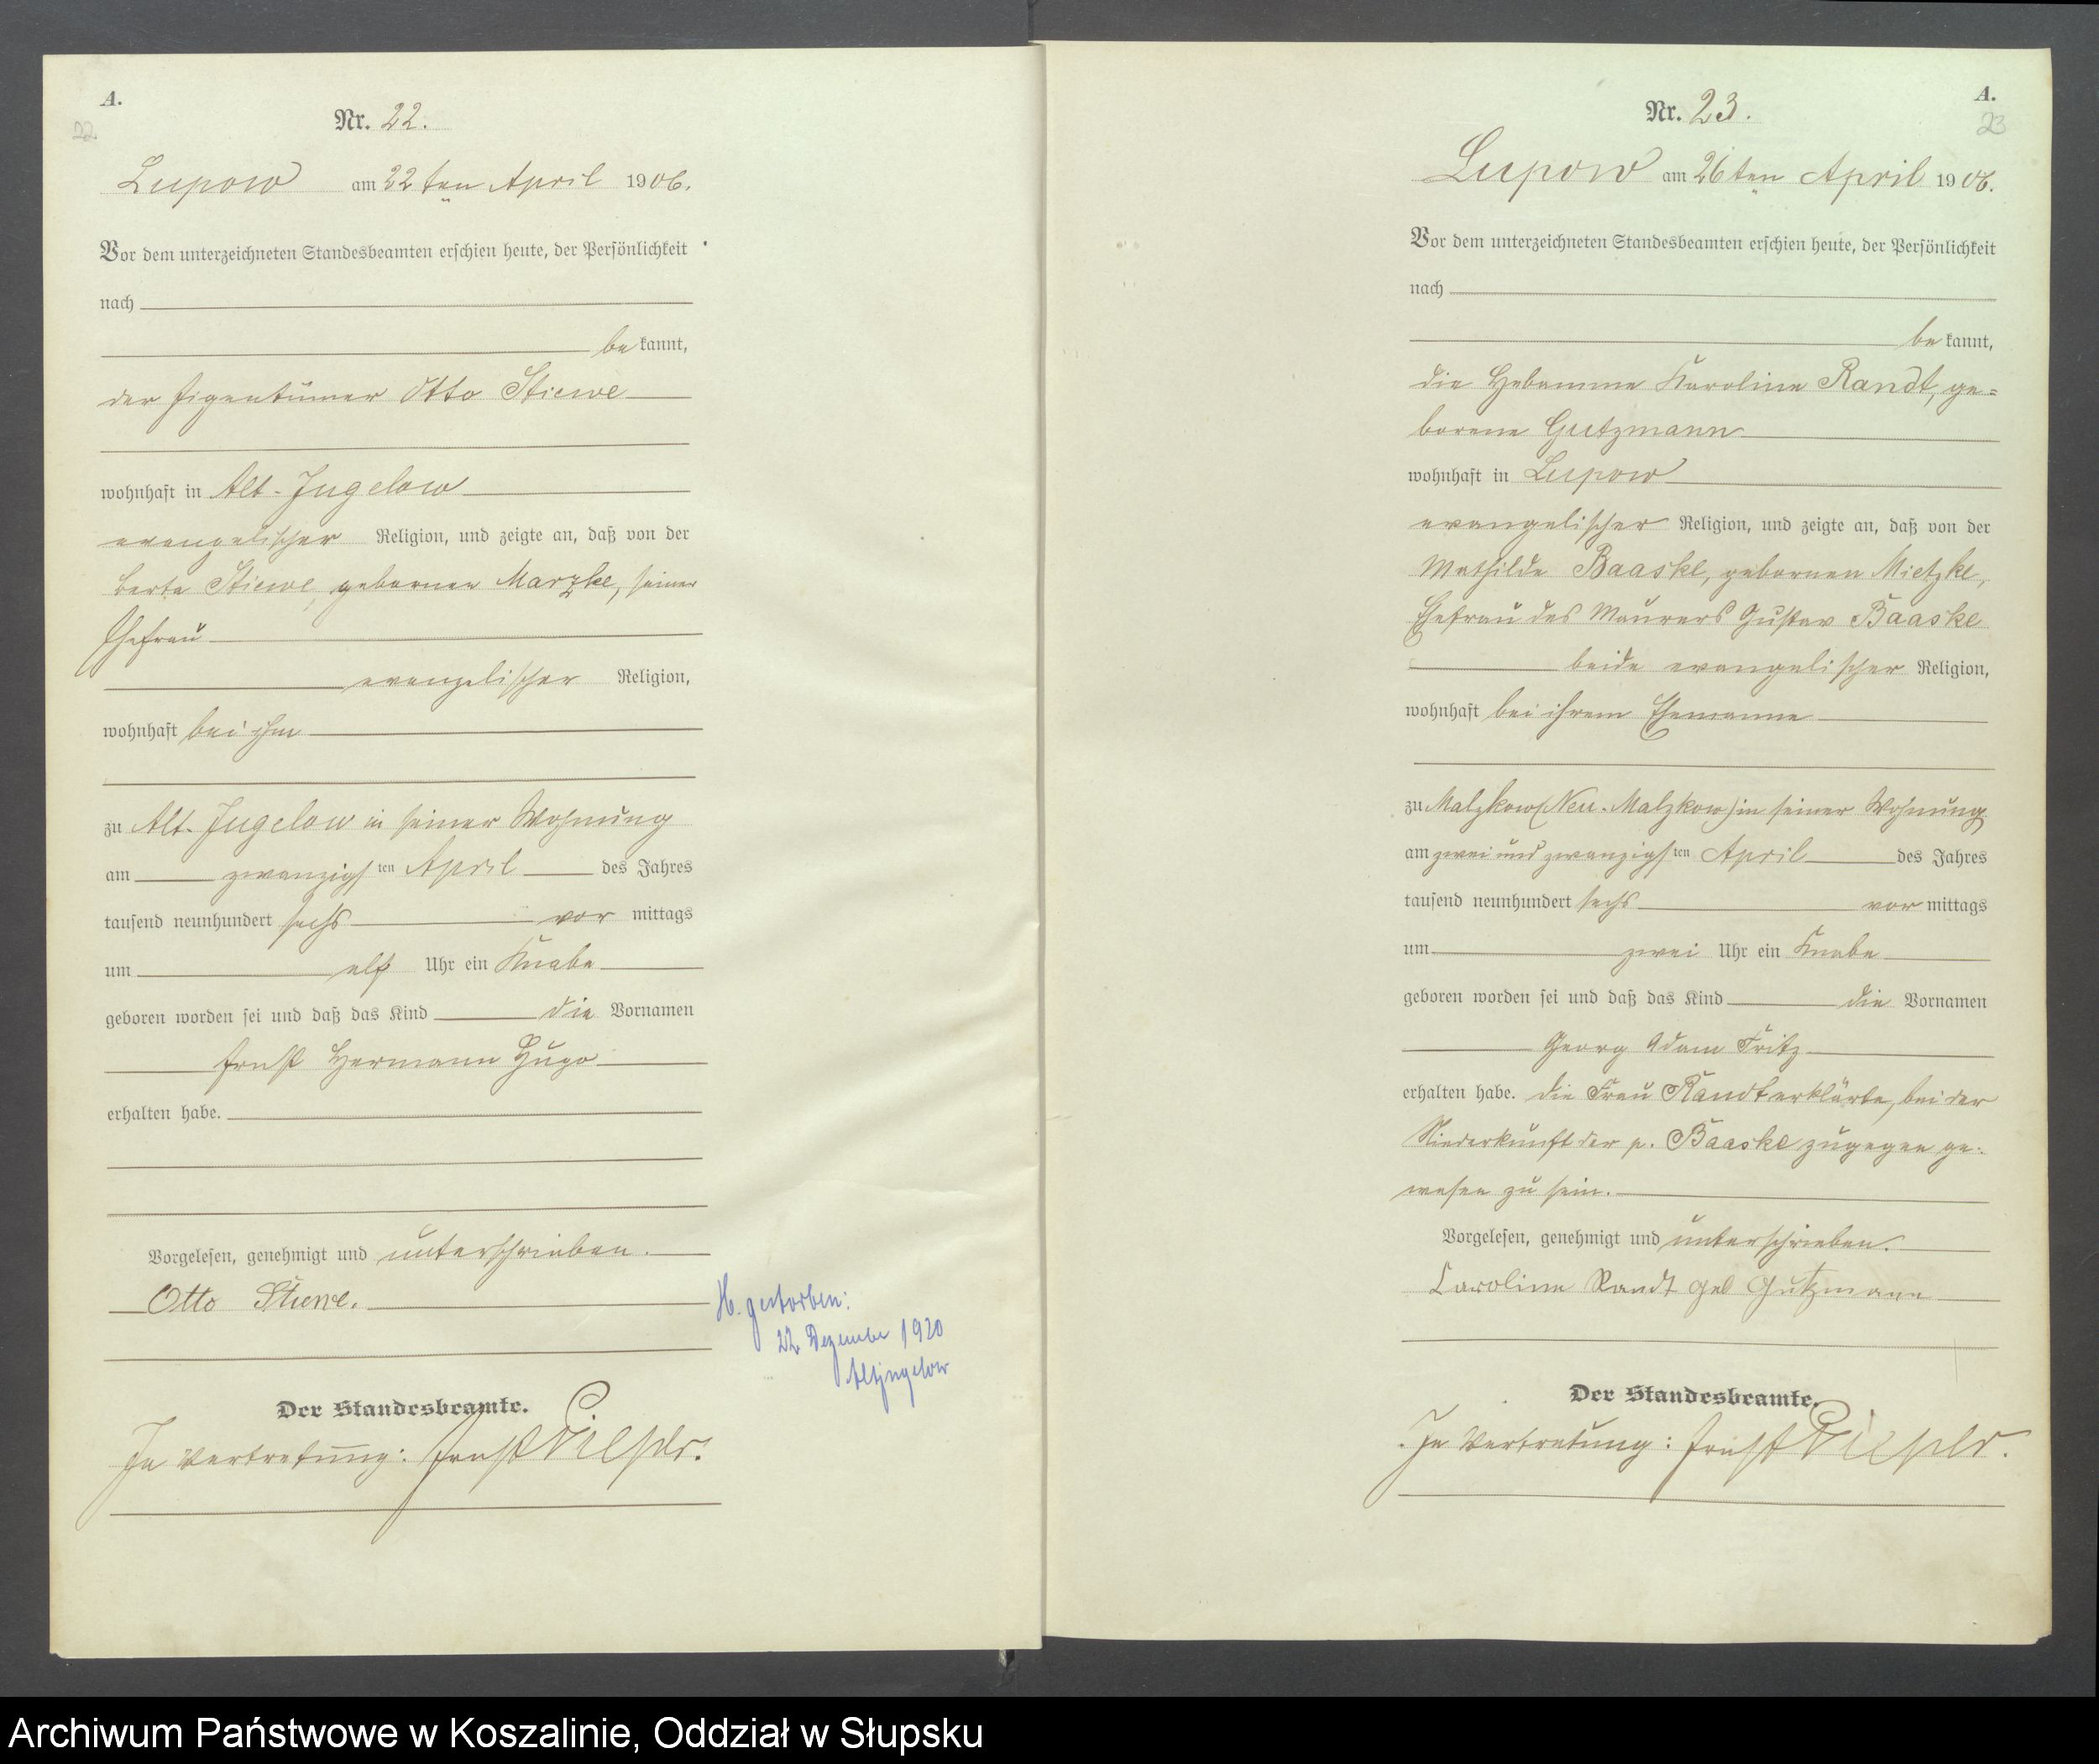 A.
22.
Nr. 22.
Lupow am 22ten April 1906.
Vor dem unterzeichneten Standesbeamten erschien heute, der Persönlichkeit
nach
bekannt,
der Eigentümer Otto Stiewe
wohnhaft in Alt-Jugelow
evangelischer Religion, und zeigte an, daß von der
Berta Stiewe, geborenen Marzke, seiner
Ehefrau
evangelischer Religion,
wohnhaft bei ihm
zu Alt-Jugelow in seiner Wohnung
am zwanzigsten April des Jahres
tausend neunhundert sechs vormittags
um elf Uhr ein Knabe
geboren worden sei und daß das Kind die Vornamen
Ernst Hermann Hugo
erhalten habe.
Vorgelesen, genehmigt und unterschrieben.
Otto Stiewe.
H. gestorben:
22 Dezember 1920
Altjugelow
Der Standesbeamte.
In Vertretung: Ernst Pieper.
A.
23
Nr. 23.
Lupow am 26ten April 1906.
Vor dem unterzeichneten Standesbeamten erschien heute, der Persönlichkeit
nach
bekannt,
die Hebamme Karoline Randt, ge=
borene Gutzmann
wohnhaft in Lupow
evangelischer Religion, und zeigte an, daß von der
Mathilde Baaske, geborenen Mietzke,
Ehefrau des Maurers Gustav Baaske
beide evangelischer Religion,
wohnhaft bei ihrem Ehemanne
zu Malzkow (Neu-Malzkow) in seiner Wohnung
am zwei und zwanzigsten April des Jahres
tausend neunhundert sechs vormittags
um zwei Uhr ein Knabe
geboren worden sei und daß das Kind die Vornamen
Georg Adam Fritz
erhalten habe. Die Frau Randt erklärte, bei der
Niederkunft der p. Baaske zugegen ge-
wesen zu sein.
Vorgelesen, genehmigt und unterschrieben.
Caroline Randt geb Gutzmann
Der Standesbeamte.
In Vertretung: Ernst Pieper.
Archiwum Państwowe w Koszalinie, Oddział w Słupsku